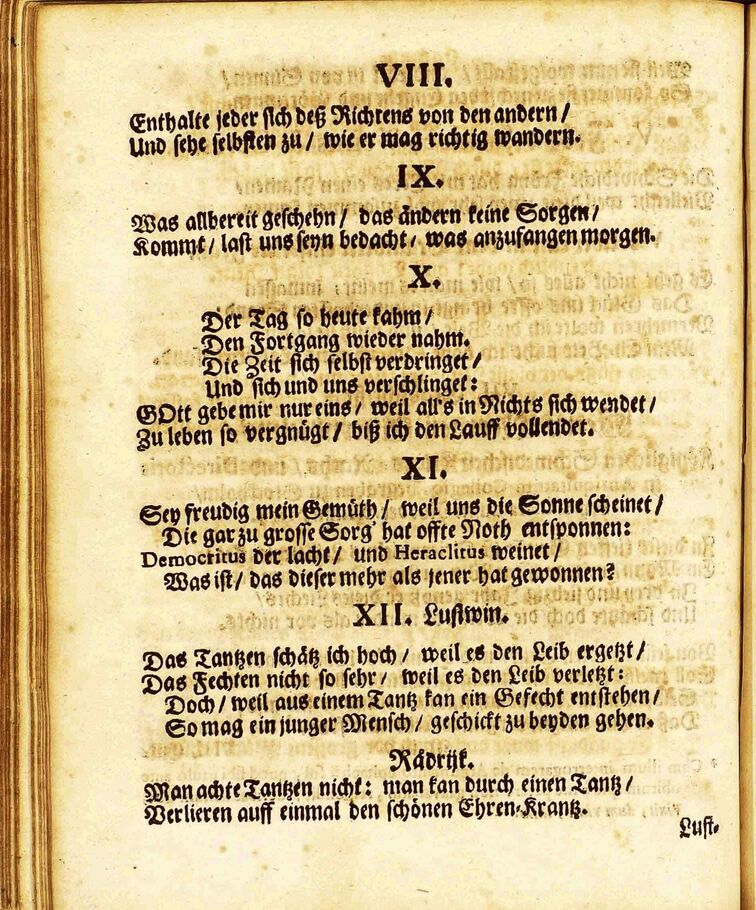 VIII.
Enthalte jeder sich deß Richtens von den andern /
Und sehe selbsten zu / wie er mag richtig wandern.
IX.
Was allbereit geschehn / das ändern keine Sorgen /
Kommt / last uns seyn bedacht / was anzufangen morgen.
X.
Der Tag so heute kahm /
Den Fortgang wieder nahm.
Die Zeit sich selbst verdringet /
Und sich und uns verschlinget:
GOtt gebe mir nur eins / weil all's in Nichts sich wendet /
Zu leben so vergnügt / biß ich den Lauff vollendet.
XI.
Sey freudig mein Gemüth / weil uns die Sonne scheinet /
Die gar zu grosse Sorg' hat offte Noth entsponnen:
Democritus der lacht / und Heraclitus weinet /
Was ist / das dieser mehr als jener hat gewonnen?
XII. Lustwin.
Das Tantzen schätz ich hoch / weil es den Leib ergetzt /
Das Fechten nicht so sehr / weil es den Leib verletzt:
Doch / weil aus einem Tantz kan ein Gefecht entstehen /
So mag ein junger Mensch / geschickt zu beyden gehen.
Rädrijk.
Man achte Tantzen nicht: man kan durch einen Tantz /
Verlieren auff einmal den schönen Ehren-Krantz.
Lust-